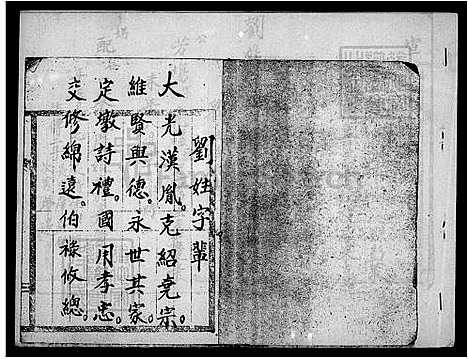 劉姓字輩
大光漢胤。克紹堯宗。
維賢與德。永世其家。
定敬詩禮。國用孝忠。
交修綿遠。伯祿攸總。